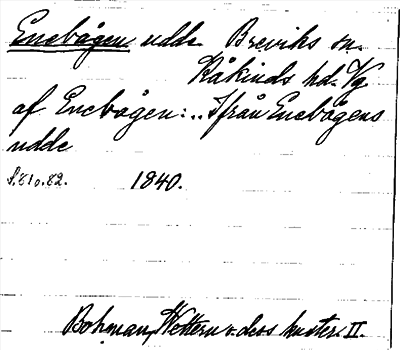 Enebågen udde Breviks sn.
Kåkinds hd. Vg
af Enebågen: .. Ifrån Enebågens
udde
S. 81 o. 82. 1840.
Bohman, Wettern o. dess kuster. II.